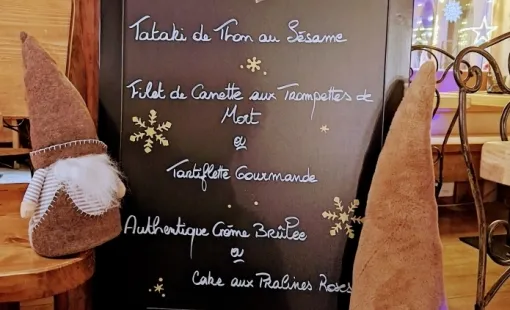 Tataki de Thon au Sésame
Filet de Canette aux Trompettes de
Mort
ou
Tartiflette Gourmande
Authentique Crème Brûlée
ou
Cake aux Pralines Roses